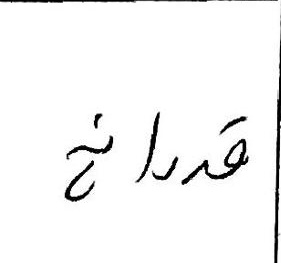 قدرانج